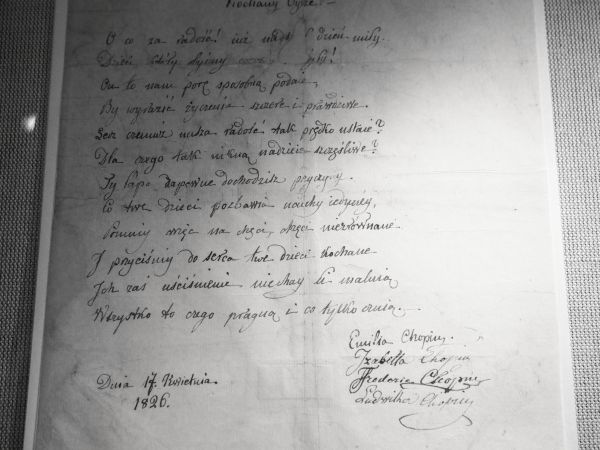 Kochany Ojcze.
O co za radość! już nad dzień miły
Dzieci
On to nam porę sposobną podaie,
By wyrazić życzenia szczere i prawdziwe.
Lecz czemuż nasza radość tak prędko ustaie?
Dla czego tak nikną nadzieie szczęśliwe?
Ty Papo zapewne dochodzisz przyczyny
Co twe dzieci pozbawia nauchy iedyney,
Pomniy więc na chęci, chęci niezrównane
I przyciśniy do serca twe dzieci kochane
Ich zaś uściśnienie niechay Ci maluią
Wszystko to czego pragną i co tylko czuią.
Emilia Chopin.
Izabella Chopin
Frederic Chopin
Ludwika Chopin
Dnia 17. Kwietnia
1826.